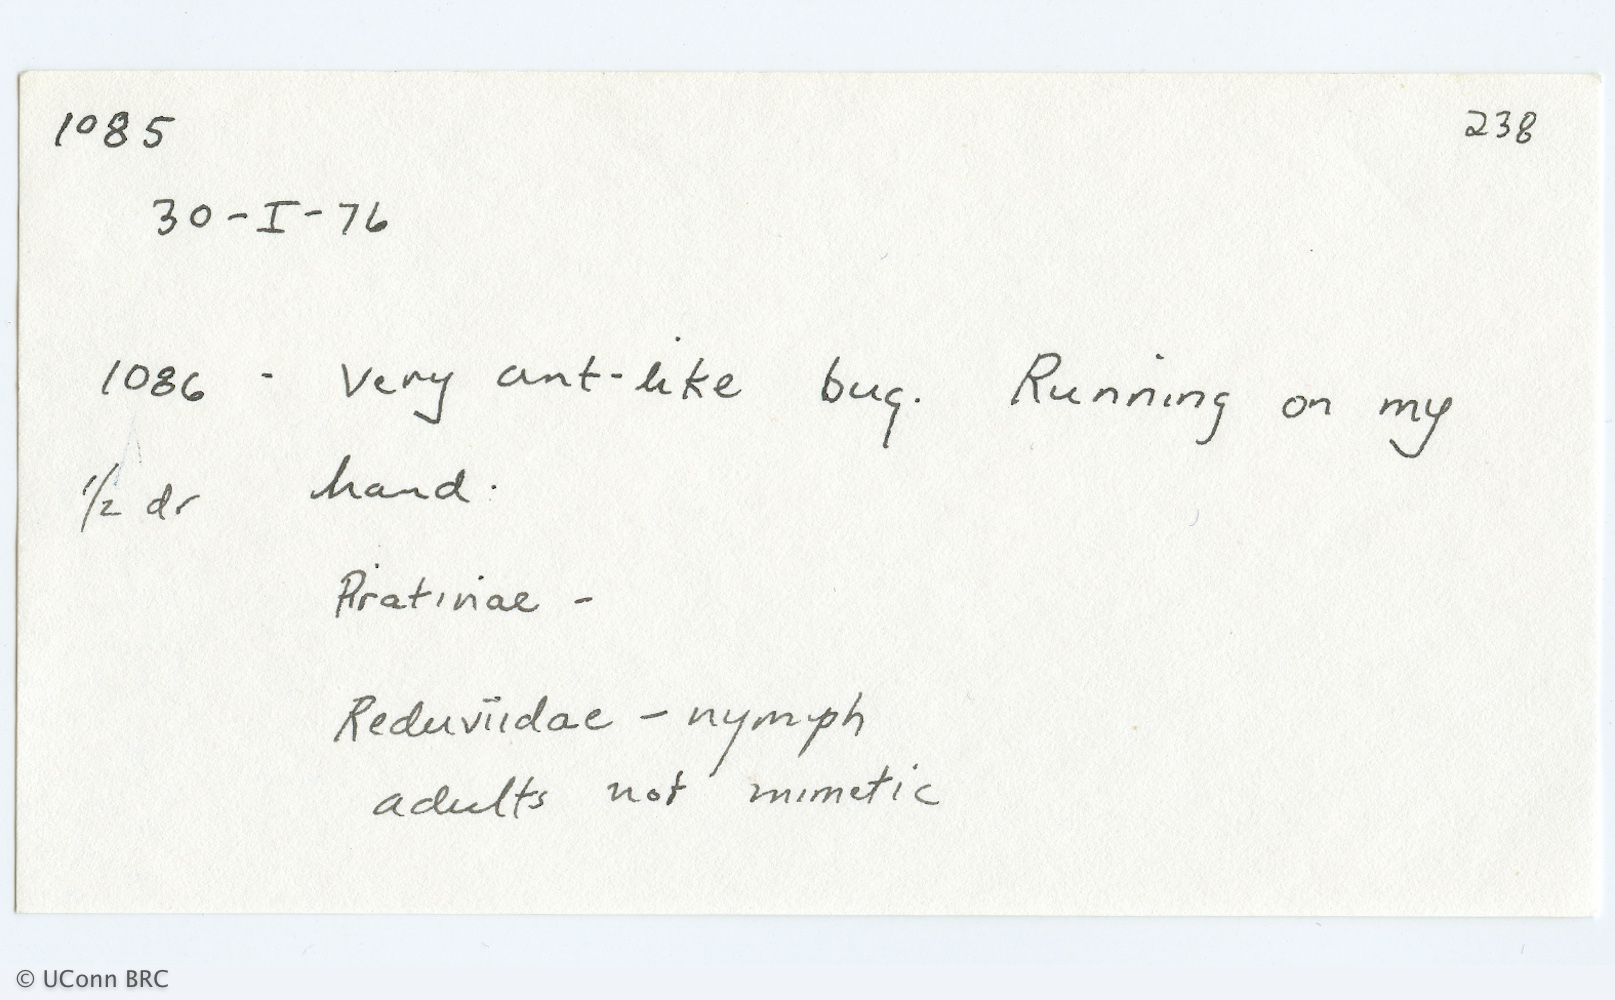 1085
238
30-I-76
1086 - Very ant-like bug. Running on my
1/2 dr hand.
Piratinae -
Reduviidae - nymph
adults not mimetic
© UConn BRC